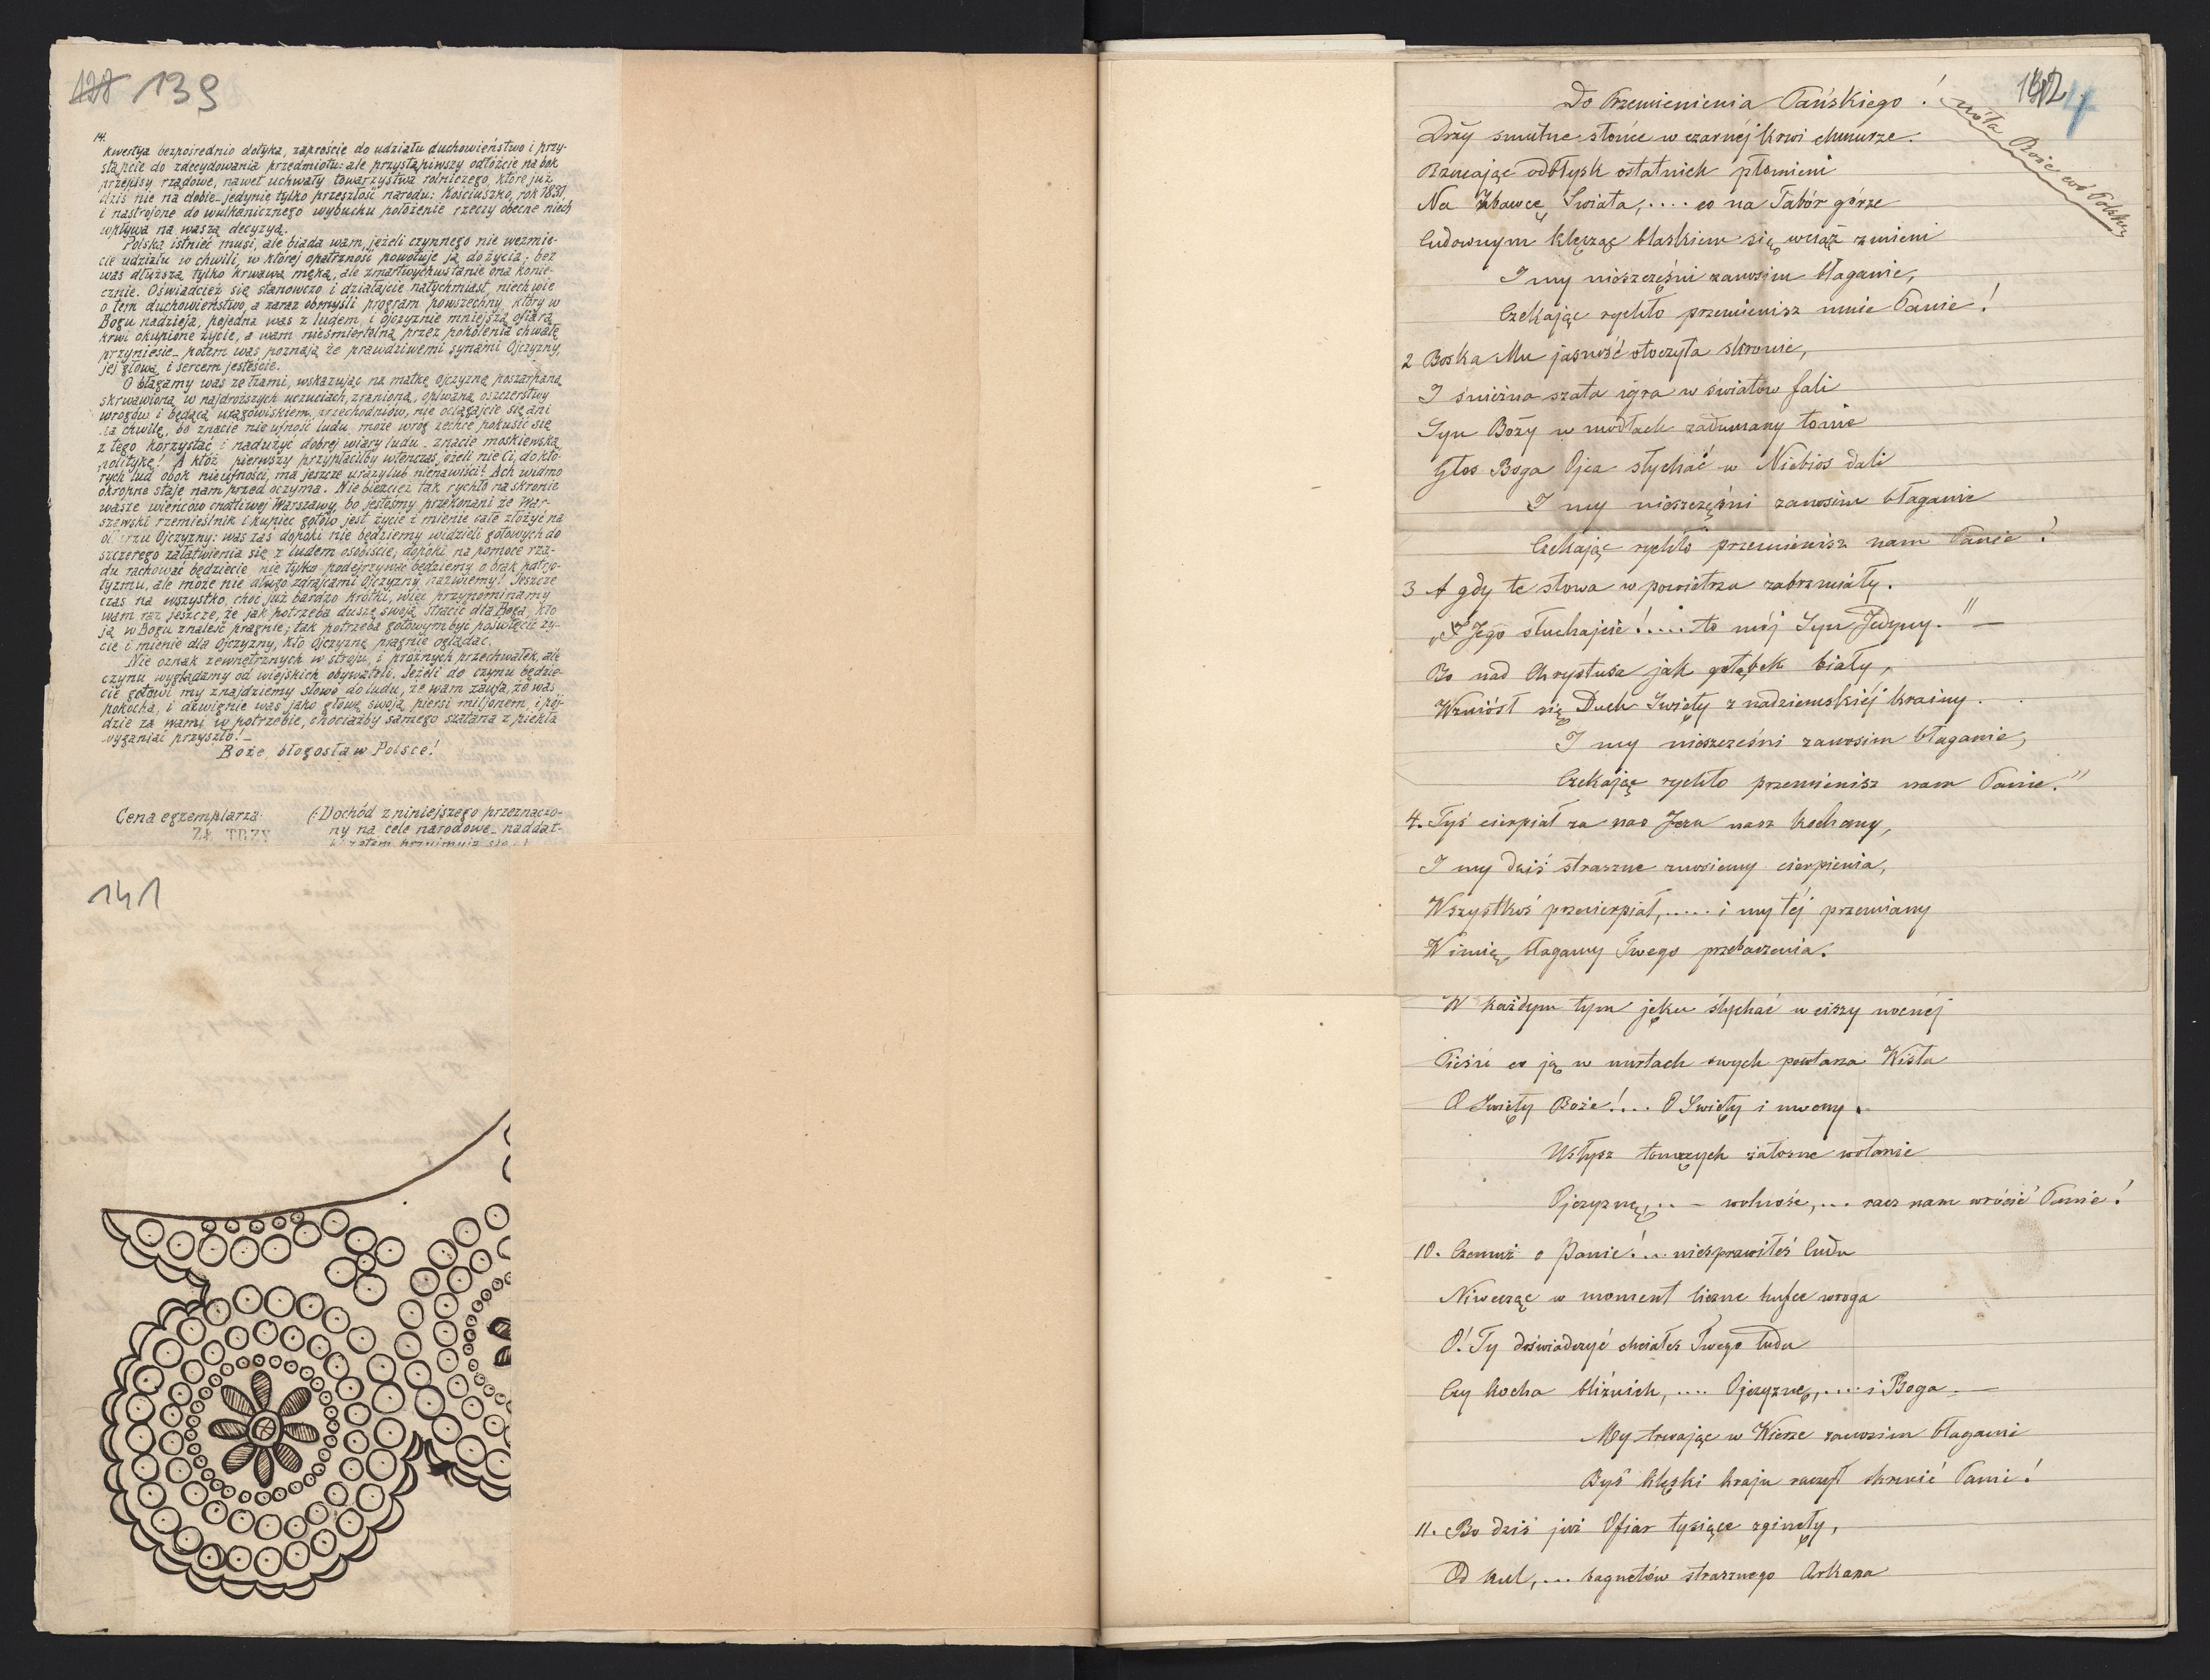 139
14.
kwestya bezpośrednio dotyka, zaproście do udziału duchowieństwo i przy-
stąpcie do zdecydowania przedmiotu: ale przystąpiwszy odłóżcie na bok
przepisy rządowe, nawet uchwały towarzystwa rolniczego które już
dziś nie na dobie_ jedynie tylko przeszłość narodu: Kościuszko, rok 1831,
i nastrojone do wulkanicznego wybuchu położenie rzeczy obecne niech
wpływa na waszą decyzyą.
Polska istnieć musi, ale biada wam, jeżeli czynnego nie weźmie-
cie udziału w chwili, w której opatrzność powołuje ją do życia; bez
was dłuższą tylko krwawą męką, ale zmartwychwstanie ona konie-
cznie. Oświadcież się stanowczo i działajcie natychmiast, niech wie
o tem duchowieństwo, a zaraz obmyśli program powszechny, który w
Bogu nadzieja, pojedna was z ludem, i Ojczyznie mniejszą ofiarą
krwi okupione życie, a wam nieśmiertelną przez pokolenia chwałę
przyniesie_ potem was poznają że prawdziwemi synami Ojczyzny,
jej głową i sercem jesteście.
O błagamy was ze łzami, wskazując na matkę Ojczyznę poszarpaną
skrwawioną w najdroższych uczuciach, zranioną, oplwaną oszczerstwy
wrogów i będącą urągowiskiem przechodniów, nie ociągajcie się ani
na chwilę, bo znacie nieufność ludu może wróg zechce pokusić się
z tego korzystać i nadużyć dobrej wiary ludu_ znacie moskiewską
politykę! A któż pierwszy przypłaciłby wtenczas jeżeli nie Ci, do któ-
rych lud obok nieufności, ma jeszcze urazy lub nienawiści! Ach widmo
okropne staje nam przed oczyma. Nie bierzcież tak rychło na skronie
wasze wieńców cnotliwej Warszawy, bo jesteśmy przekonani że War-
szawski rzemieślnik i kupiec gotów jest życie i mienie całe złożyć na
ołtarzu Ojczyzny: was zaś dopóki nie będziemy widzieli gotowych do
szczerego załatwienia się z ludem osobiście, dopóki na pomoce rzą-
du rachować będziecie nie tylko podejrzywać będziemy o brak patrjo-
tyzmu, ale może nie długo zdrajcami Ojczyzny nazwiemy! Jeszcze
czas na wszystko, choć już bardzo krótki, więc przypominamy
wam raz jeszcze, że jak potrzeba duszę swoją stracić dla Boga, kto
ją w Bogu znaleść pragnie; tak potrzeba gotowym być poświęcić ży-
cie i mienie dla Ojczyzny, kto Ojczyznę pragnie oglądać.
Nie oznak zewnętrznych w stroju, i próżnych przechwałek, ale
czynu wyglądamy od wiejskich obywateli. Jeżeli do czynu będzie-
cie gotowi my znajdziemy słowo do ludu, że wam zaufa, że was
pokocha, i dźwignie was jako głowę swoją, piersi miljonem, i pój-
dzie za wami w potrzebie, chociażby samego szatana z piekła
wyganiać przyszło!_
Boże, błogosław Polsce!
Cena egzemplarza:
ZŁ TRZY
(:Dochód z niniejszego przeznaczo-
ny na cele narodowe_ naddat-
141
Do Przemienienia Pańskiego!
nóta Boże coś Polskę
4
Drży smutne słońce w czarnéj krwi chmurze.
Rzucając odbłysk ostatnich płomieni
Na Zbawcę Swiata,.... co na Tabór górze
Cudownym klęcząc blaskiem się wciąż zmieni
I my nieszczęśni zanosim błaganie,
Czekając rychło przemienisz mnie Panie!
2 Boska Mu jasność otoczyła skronie,
I śnieżna szata igra w światów fali
Syn Boży w modłach zadumany tonie
Głos Boga Ojca słychać w Niebios dali
I my nieszczęśni zanosim błaganie
Czekając rychło przemienisz nam Panie!
3 A gdy te słowa w powietrzu zabrzmiały.
„Jego słuchajcie!..... to mój Syn Jedyny." —
Bo nad Chrystusa jak gołąbek biały,
Wzniósł się Duch Swięty z nadziemskiéj krainy.
I my nieszczeni zanosim błaganie,
Czekając rychło przemienisz nam Panie."
4. Tyś cierpiał za nas Jezu nasz kochany,
I my dziś straszne znosiemy cierpienia,
Wszystkoś przecierpiał,..... i my téj przemiany
W imię, błagamy Twego przebaczenia.
W każdym tym jęku słychać w ciszy nocnéj
Pieśń co ją w nurtach swych powtarza Wisła
O Swięty Boże!... O Swięty i mocny.
Usłysz tonących żałosne wołanie
Ojczyznę,... — wolność,... racz nam wrócić Panie!
10. Czemuż o Panie!... niesprawiłeś cudu
Niwecząc w moment liczne hufce wroga
O! Ty doświadczyć chciałeś Twego ludu
Czy kocha bliźnich,.... Ojczyznę,.... i Boga. —
My trwając w Wierze zanosim błaganie
Byś klęski kraju raczył skrócić Panie!
11. Bo dziś już Ofiar tysiące zginęły,
Od kul,... bagnetów strasznego Arkana